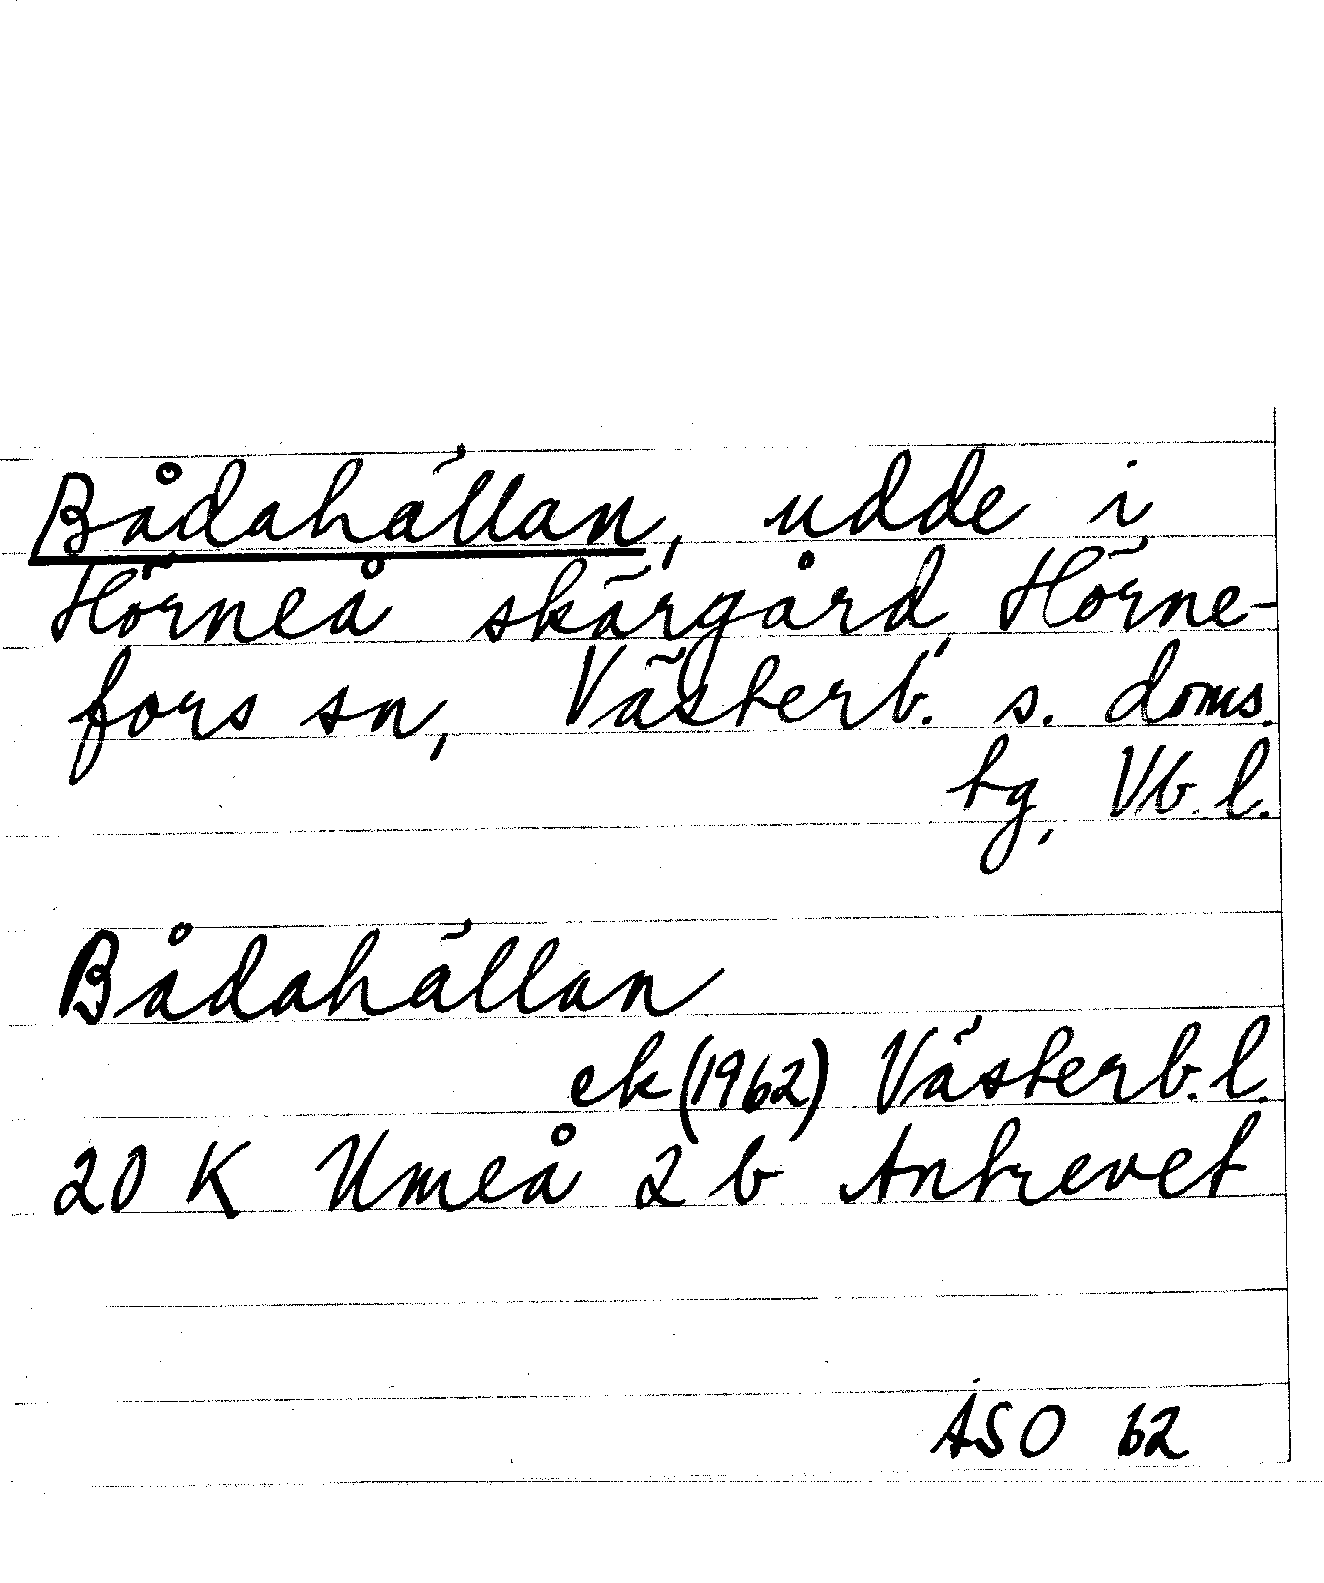 Bådahällan, udde i
Hörneå skärgård, Hörne-
fors sn, Västerb. s. doms.
tg, Vb. l.
Bådahällan
ek (1962) Västerb. l.
20 K Umeå 2 b Antrevet
ÅSO 62